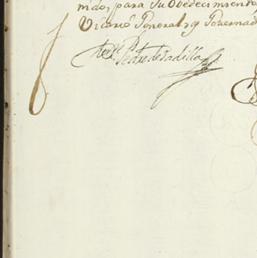 mdo, para su Obedecimiento
Vicario General, y Governad
Pedro de Padilla